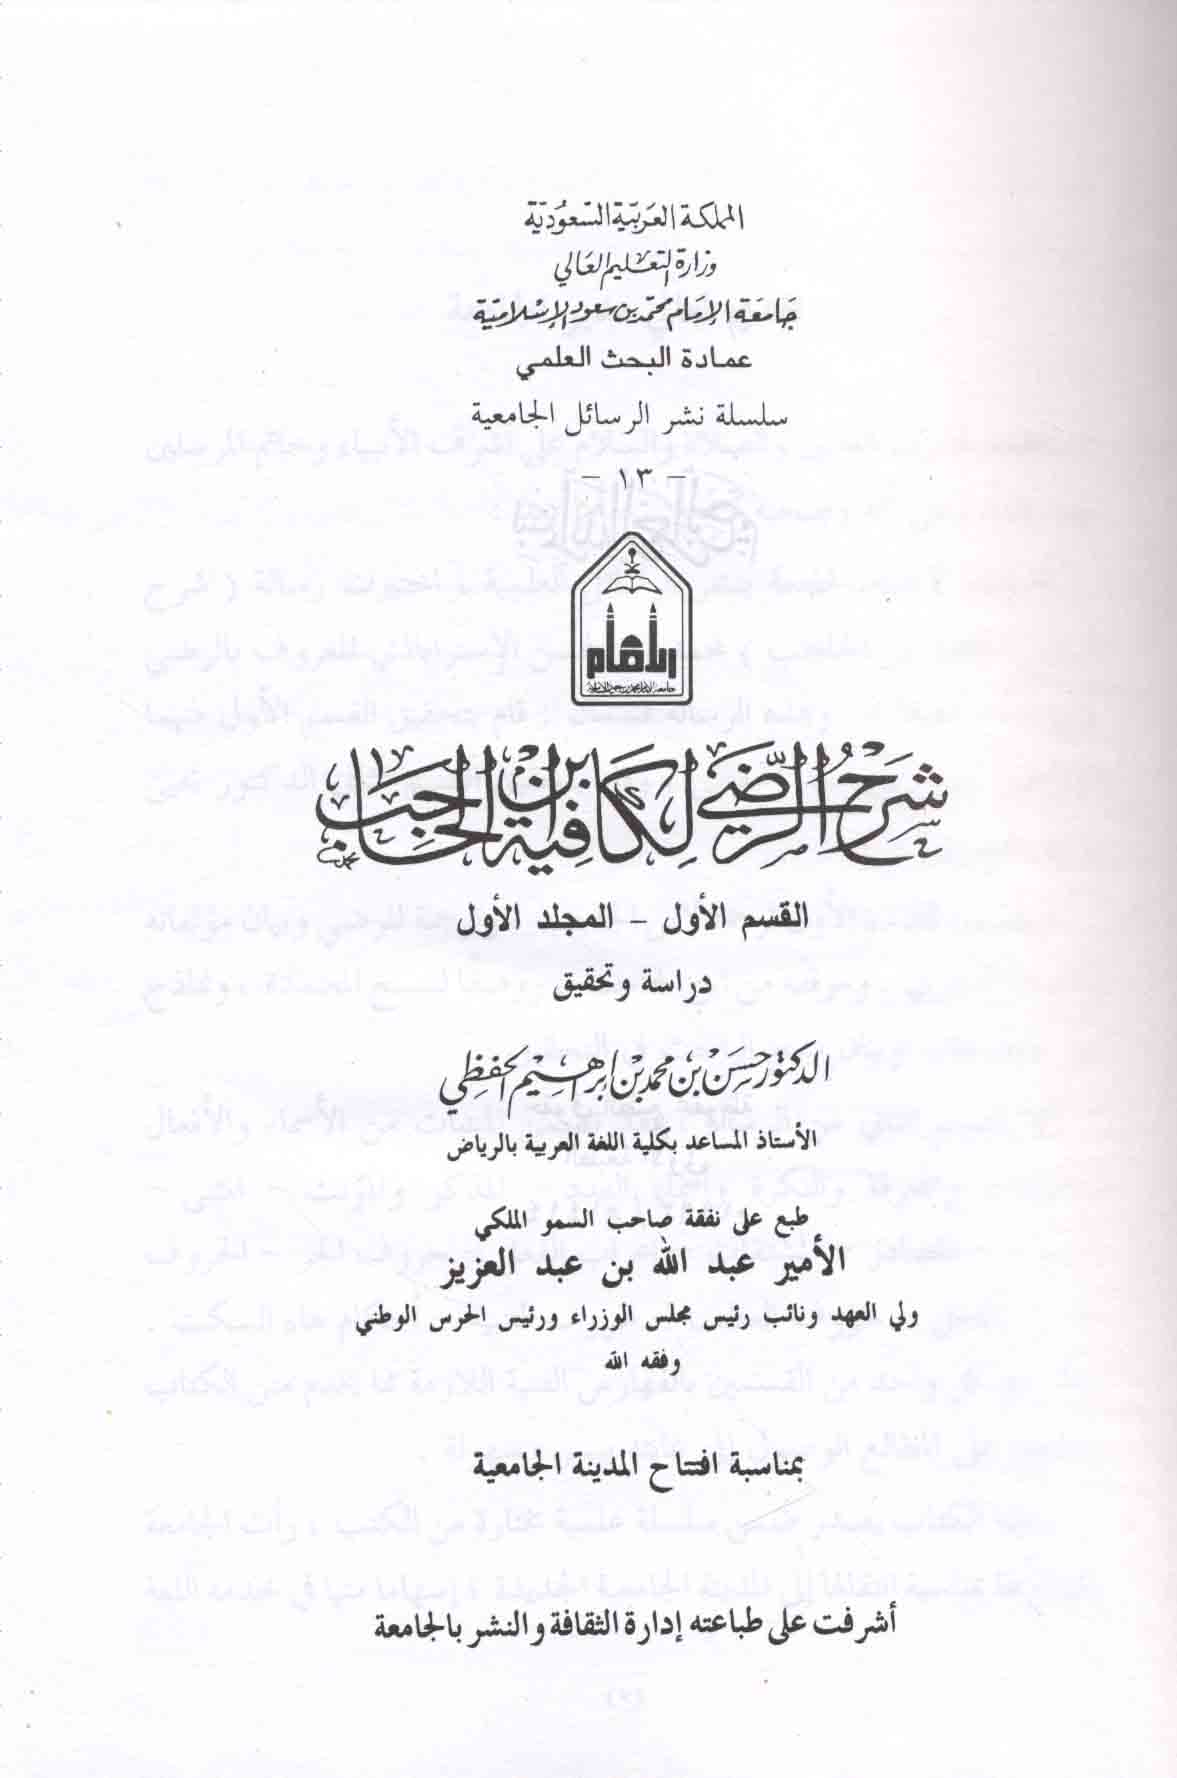 المملكة العربية السعودية
وزارة التعليم العالي
جامعة الإمام محمد بن سعود الإسلامية
عمادة البحث العلمي
سلسلة نشر الرسائل الجامعية
- ١٣ -
جامعة الإمام محمد بن سعود الإسلامية
شرح الرضي لكافية ابن الحاجب
القسم الأول - المجلد الأول
دراسة وتحقيق
الدكتور حسن بن محمد بن إبراهيم الحفظي
الأستاذ المساعد بكلية اللغة العربية بالرياض
طبع على نفقة صاحب السمو الملكي
الأمير عبد الله بن عبد العزيز
ولي العهد ونائب رئيس مجلس الوزراء ورئيس الحرس الوطني
وفقه الله
بمناسبة افتتاح المدينة الجامعية
أشرفت على طباعته إدارة الثقافة والنشر بالجامعة